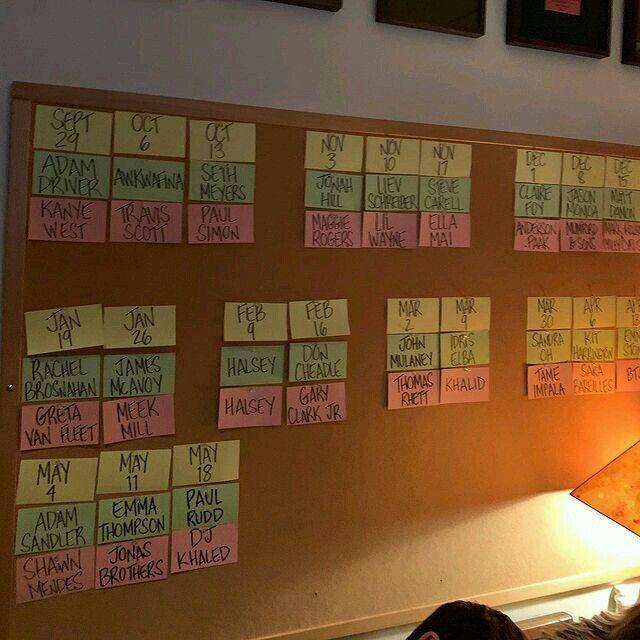 SEPT
29
ADAM
DRIVER
KANYE
WEST
OCT
6
AWKWAFINA
TRAVIS
SCOTT
OCT
13
SETH
MEYERS
PAUL
SIMON
NOV
3
JONAH
HILL
MAGGIE
ROGERS
NOV
10
LIEV
SCHREIBER
LIL
WAYNE
NOV
17
STEVE
CARELL
ELLA
MAI
DEC
1
CLAIRE
FOY
ANDERSON
.PAAK
DEC
8
JASON
MOMOA
MUMFORD
& SONS
DEC
15
MATT
DAMON
MARK
JAN
19
RACHEL
BROSNAHAN
GRETA
VAN FLEET
JAN
26
JAMES
MCAVOY
MEEK
MILL
FEB
9
HALSEY
HALSEY
FEB
16
DON
CHEADLE
GARY
CLARK JR.
MAR
2
JOHN
MULANEY
THOMAS
RHETT
MAR
9
IDRIS
ELBA
KHALID
MAR
30
SANDRA
OH
TAME
IMPALA
APR
6
KIT
HARRINGTON
SARA
BAREILLES
EMMA
BTS
MAY
4
ADAM
SANDLER
SHAWN
MENDES
MAY
11
EMMA
THOMPSON
JONAS
BROTHERS
MAY
18
PAUL
RUDD
DJ
KHALED